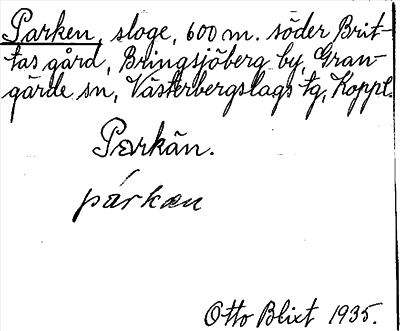 Parken, sloge, 600 m. söder Brit-
tas gård, Bringsjöberg by, Gran-
gärde sn, Västerbergslags tg, Koppl.
Parkän.
párkæn
Otto Blixt 1935.